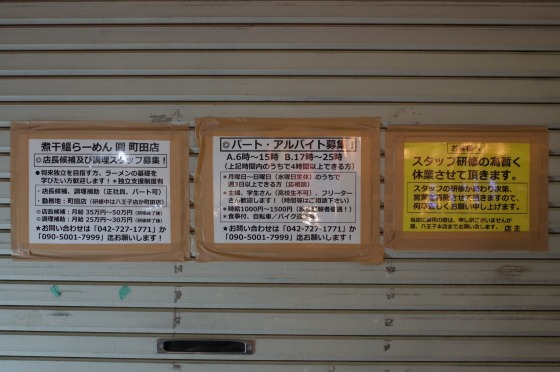 煮干鰮らーめん 圓 町田店
◎店長候補及び調理スタッフ募集！
●将来独立を目指す方、ラーメンの基礎を
学びたい方歓迎します！＊独立支援制度有
○店長候補、調理補助（正社員、パート可）
勤務地：町田店（研修中は八王子店か町田店）
◎店長候補：月給 35万円～50万円（研修終了後）
◎調理補助：月給 25万円～30万円（研修終了後）
★お問い合わせは「042-727-1771」か
「090-5001-7999」迄お願いします！
◎パート・アルバイト募集！
A.6時～15時 B.17時～25時
（上記時間内のうちで4時間以上できる方）
●月曜日～日曜日（水曜日定休）のうちで
週3日以上できる方（応相談）
★主婦、学生さん（高校生不可）、フリーター
さん歓迎します！（時間等はご相談下さい）
●時給1000円～1500円
●食事付、自転車／バイク
★お問い合わせは「042-727-1771」か
「090-5001-7999」迄お願いします！
お客様へ
スタッフ研修の為暫く
休業させて頂きます。
スタッフの研修が終わり次第、
営業を再開させて頂きますので、
何卒宜しくお願い申し上げます。
当店に御用の際は、申し訳ございませんが
圓、八王子本店までお願い致します。
店主